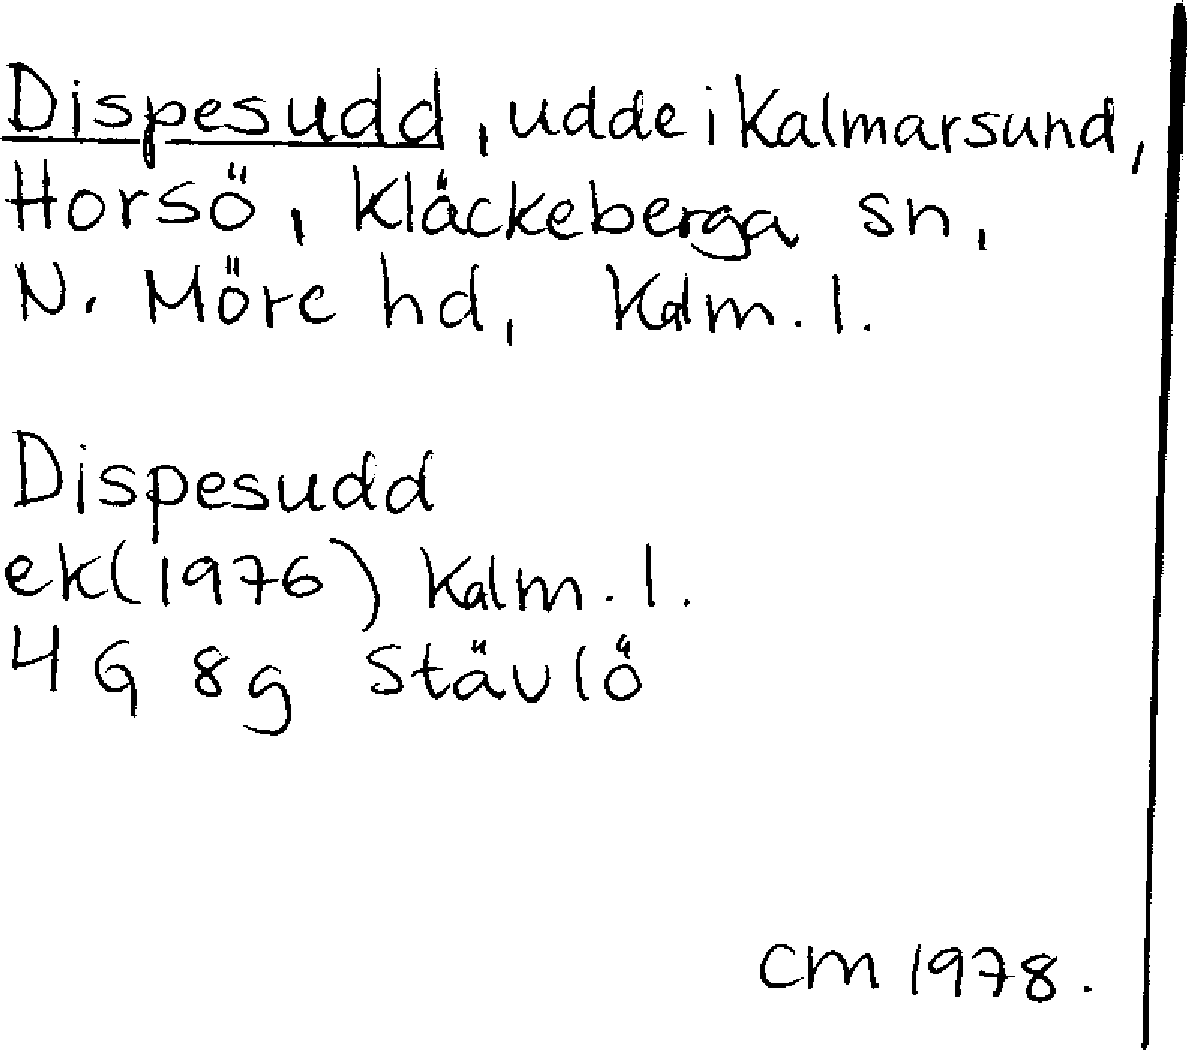 Dispesudd, udde i Kalmarsund,
Horsö, Kläckeberga sn,
N. Möre hd, Kalm. l.
Dispesudd
ek (1976) Kalm. l.
4 G 8g Stävlö
CM 1978.